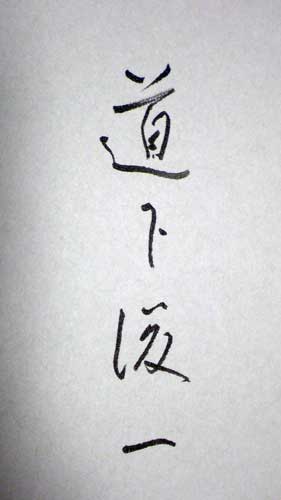 道下俊一